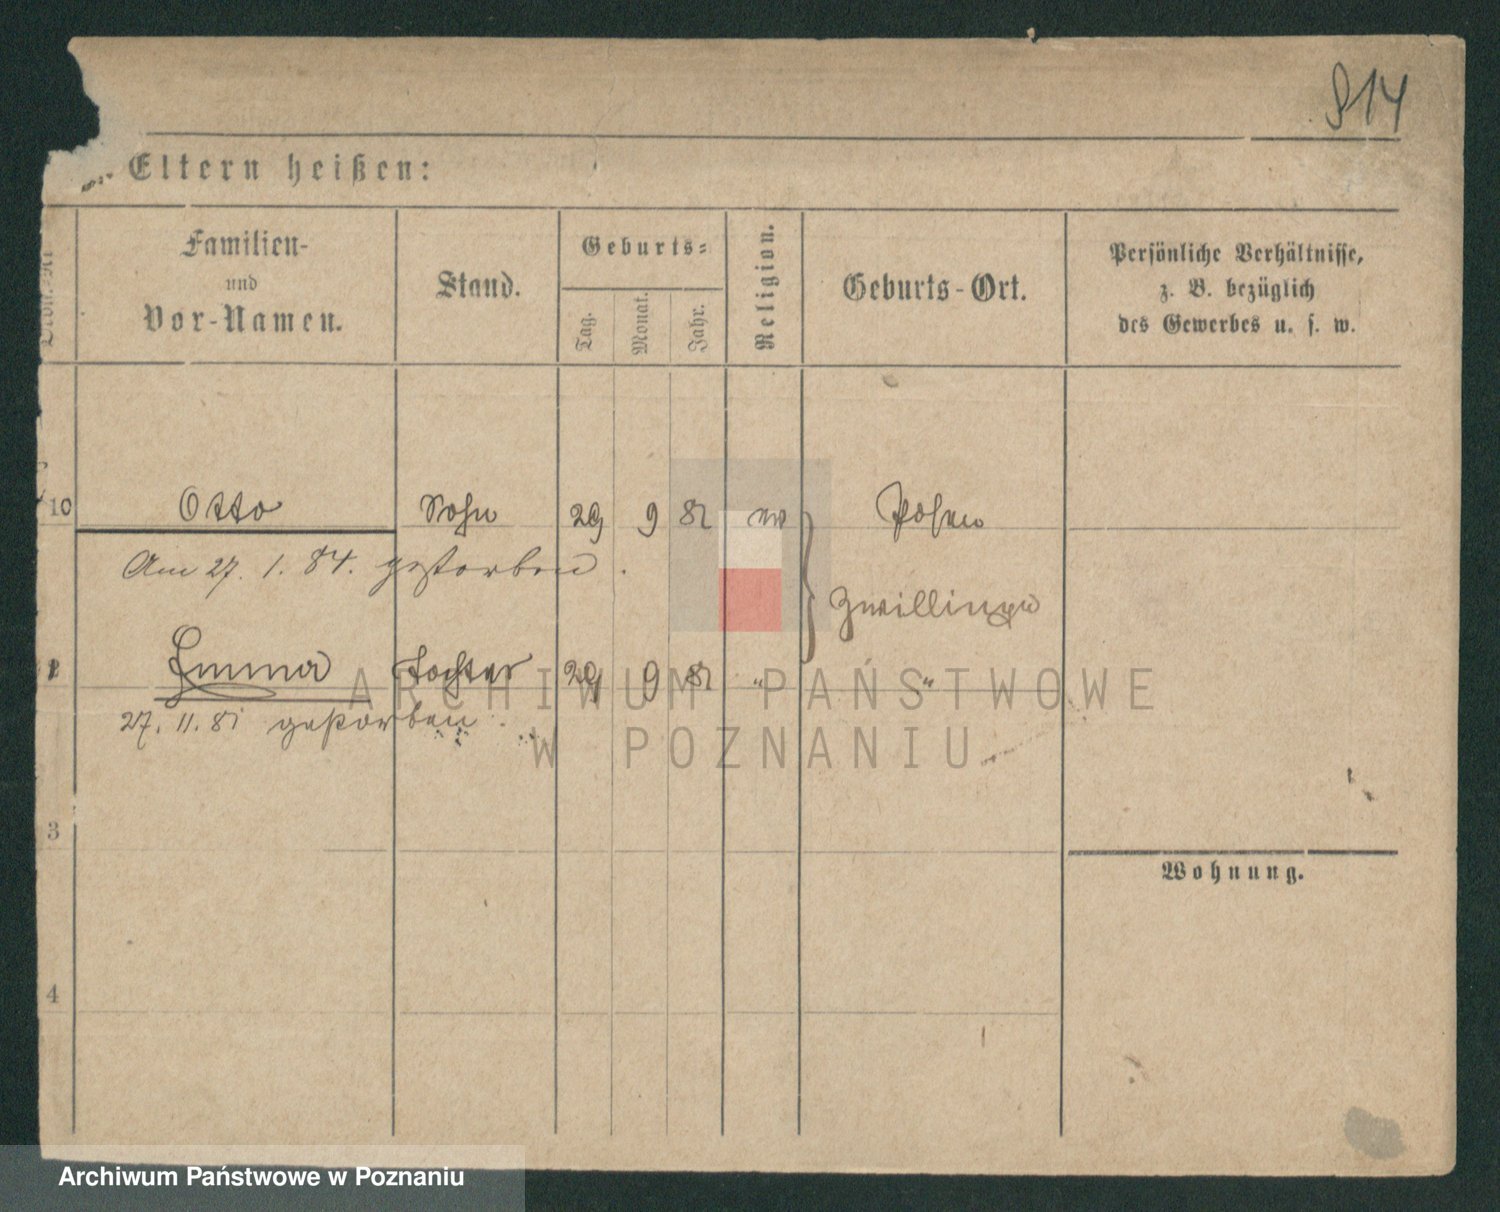 814
Eltern heißen:
Familien-
und
Vor-Namen.
Stand.
Geburts-
Tag.
Monat.
Jahr.
Religion.
Geburts-Ort.
Persönliche Verhältnisse,
z. B. bezüglich
des Gewerbes u. s. w.
10 Otto Sohn 29 9 81 ev Posen
Am 27. 1. 84. gestorben.
Zwillinge
2 Emma Tochter 29 9 81 " "
27. 11. 81 gestorben.
ARCHIWUM PAŃSTWOWE
W POZNANIU
3
Wohnung.
4
Archiwum Państwowe w Poznaniu